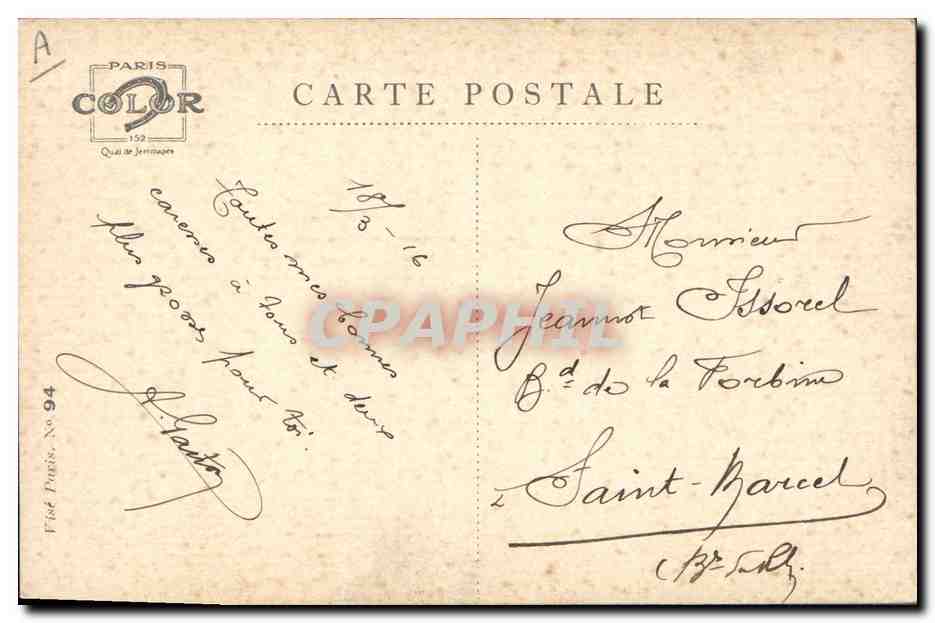 A
PARIS
COLOR
152
Quai de Jemmapes
CARTE POSTALE
18/3-16
Toutes mes bonnes
caresses à tous et deux
plus grosses pour toi.
A. Gaston
Visé Paris. No 94
Monsieur
Jeannot Issorel
Bd de la Forbine
à Saint-Marcel
CPAPHIL